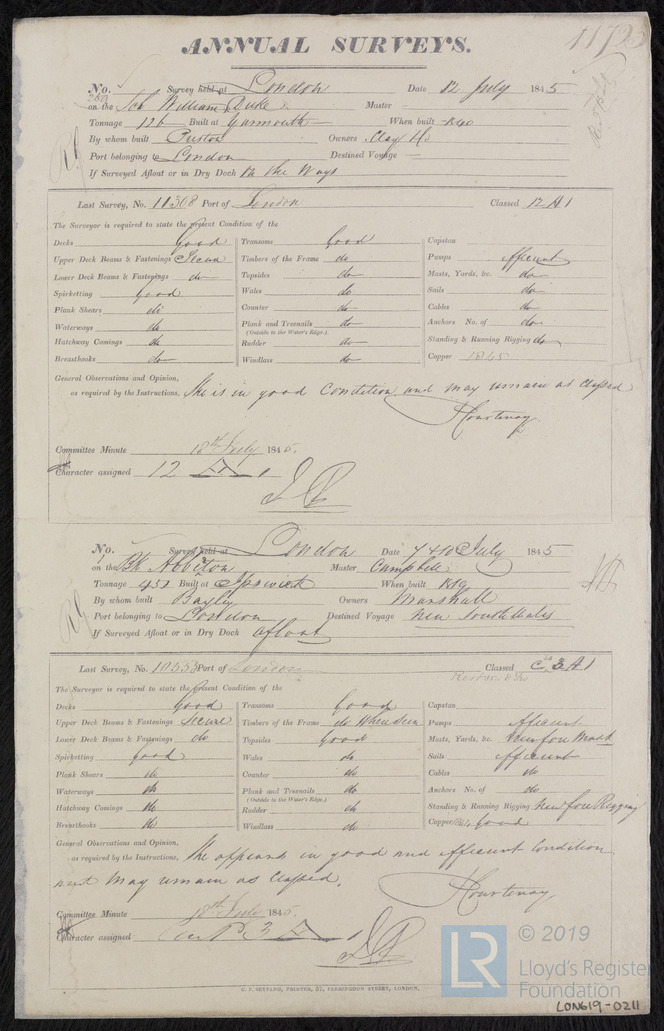 ANNUAL SURVEYS.
11723
No. Survey held at London Date 12 July 1845
on the Sch William Master
Tonnage 126 Built at Yarmouth When built 1840
By whom built Preston Owners Clay &
Port belonging to London Destined Voyage
If Surveyed Afloat or in Dry Dock On the Ways
Last Survey, No. 11308 Port of London Classed 12 A 1
The Surveyor is required to state the present Condition of the
Decks Good Transoms Good Capstan
Upper Deck Beams & Fastenings Secure Timbers of the Frame do Pumps efficient
Lower Deck Beams & Fastenings do Topsides do Masts, Yards, &c. do
Spirketting good Wales do Sails do
Plank Shears do Counter do Cables do
Waterways do Plank and Treenails do Anchors No. of do
(Outside to the Water's Edge.)
Hatchway Comings do Rudder do Standing & Running Rigging do
Breasthooks do Windlass do Copper 1845
General Observations and Opinion,
as required by the Instructions, She is in good Condition and may remain as Classed
Courtenay
Committee Minute 18th July 1845.
Character assigned 12 A 1
No. Survey held at London Date 7 & 10 July 1845
on the Bk Abbeton Master Campbell
Tonnage 451 Built at Ipswich When built
By whom built Bayly Owners Marshall
Port belonging to London Destined Voyage New South Wales
If Surveyed Afloat or in Dry Dock afloat
Last Survey, No. 10553 Port of London Classed 3 A 1
The Surveyor is required to state the present Condition of the
Decks Good Transoms Good Capstan
Upper Deck Beams & Fastenings Secure Timbers of the Frame do When seen Pumps efficient
Lower Deck Beams & Fastenings do Topsides Good Masts, Yards, &c. New fore Mast
Spirketting good Wales do Sails efficient
Plank Shears do Counter do Cables do
Waterways do Plank and Treenails do Anchors No. of do
(Outside to the Water's Edge.)
Hatchway Comings do Rudder do Standing & Running Rigging New fore Rigging
Breasthooks do Windlass do Copper good
General Observations and Opinion,
as required by the Instructions, She appears in good and efficient Condition
and may remain as Classed.
Courtenay
Committee Minute 18th July 1845.
Character assigned 3 A 1
C. F. SEYFANG, PRINTER, 57, FARRINGDON STREET, LONDON.
LR © 2019
Lloyd's Register
Foundation
LON619-0211